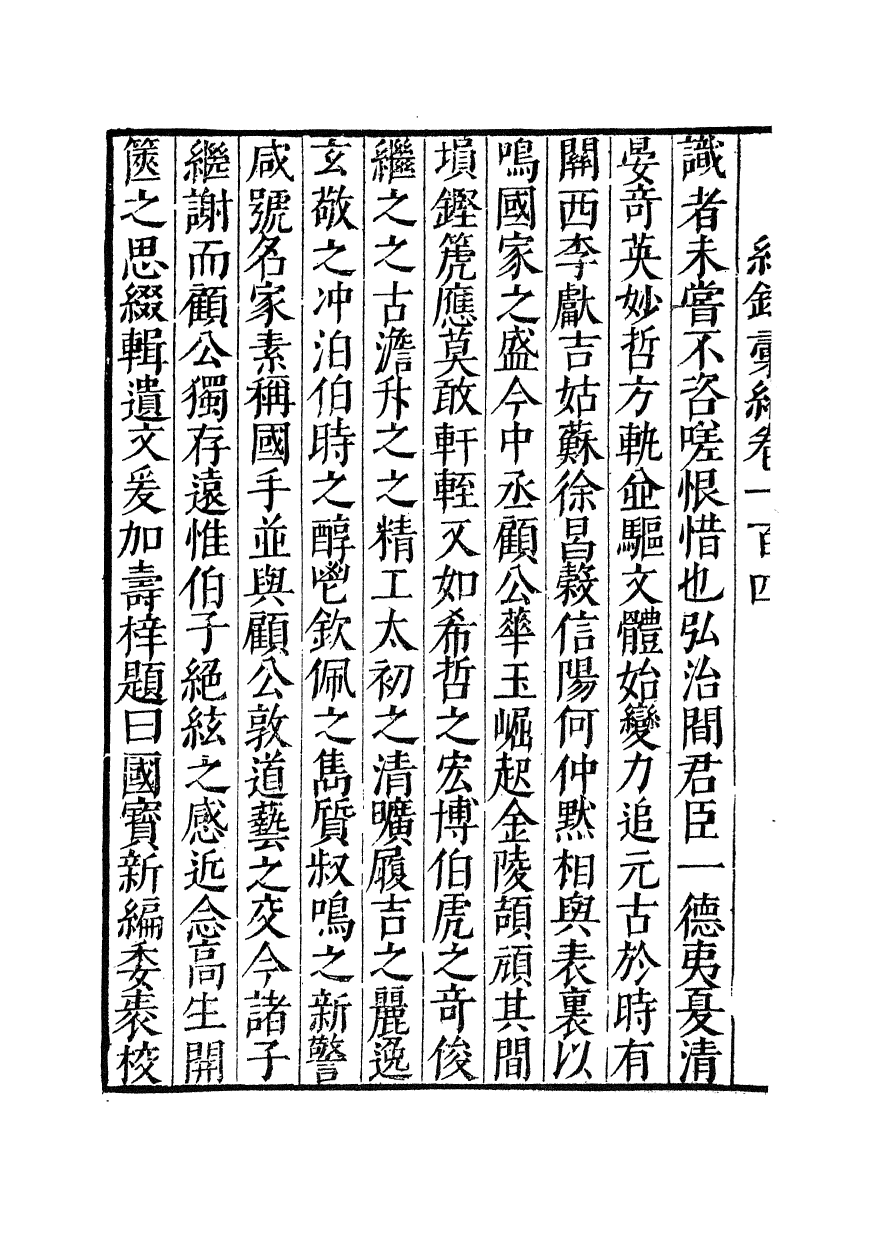 紀錄彙編卷一百四
識者未嘗不咨嗟恨惜也弘治間君臣一德夷夏清
晏奇英妙哲方軌並驅文體始變力追元古於時有
關西李獻吉姑蘇徐昌穀信陽何仲默相與表裏以
鳴國家之盛今中丞顧公華玉崛起金陵頡頏其間
塤鏗箎應莫敢軒輊又如希哲之宏博伯虎之奇俊
繼之之古澹升之之精工太初之清曠履吉之麗逸
玄敬之冲泊伯時之醇鬯欽佩之雋質叔鳴之新警
咸號名家素稱國手並與顧公敦道藝之交今諸子
繼謝而顧公獨存遠惟伯子絕絃之感近念高生開
篋之思綴輯遺文爰加壽梓題曰國寶新編委袠校